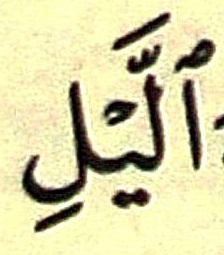 ٱلَّيْلِ